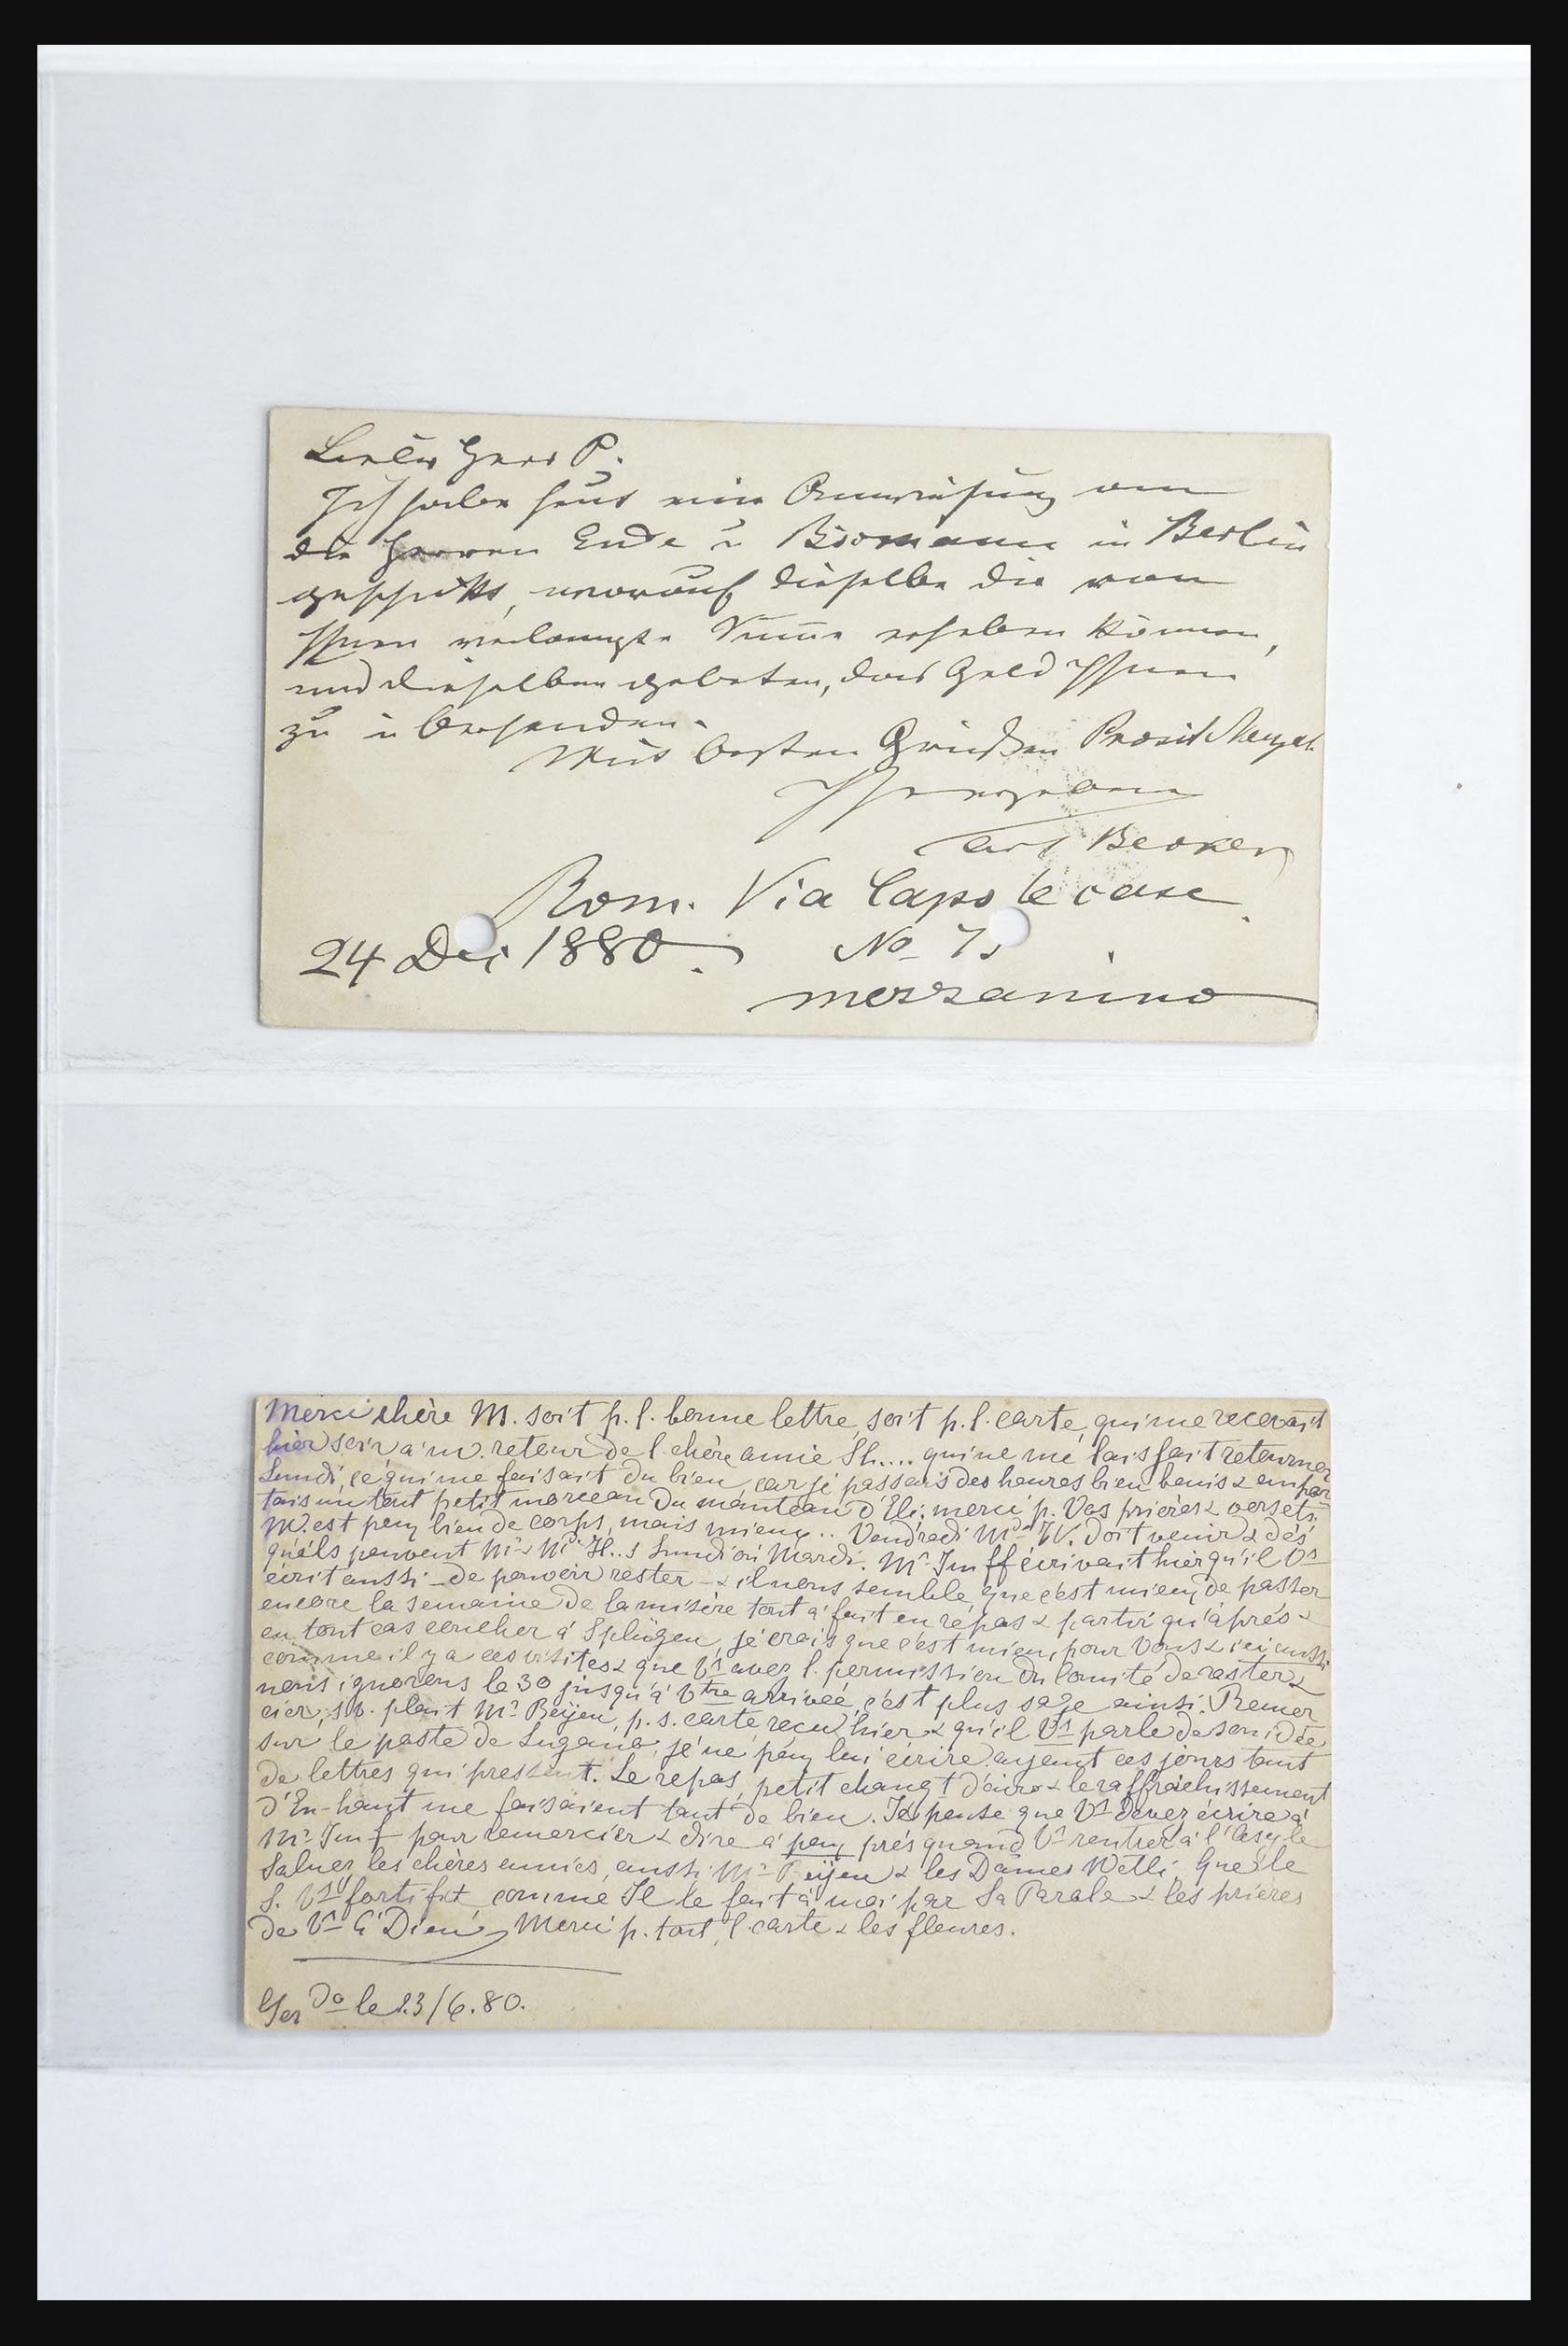 Lieber Herr P.
Ich habe heut eine Anweisung an
die Herren Ende u. Boomann in Berlin
geschickt, worauf dieselbe die von
Ihnen verlangte Summe erheben können,
und dieselben gebeten, das Geld Ihnen
zu übersenden.
Mit besten Grüßen Prosit Neujah
Ihr ergebener
Carl Becker
Rom. Via Capo le case
24 Dec 1880. No 75
mezzanino
Merci chère M. soit p. l. bonne lettre, soit p. l. carte, qui me recevait
hier soir a m. retour de l. chère annie Sh.... qui ne me laissait retourner
Lundi, ce qui me faisait du bien, car je passais des heures bien benis & empor
tais un tout petit morceau du manteau d'Eli; merci p. Vos prières & versets.
M. est peu bien de corps, mais mieux.. Vendredi Md W. doit venir & dès
qu'éls peuvent Mr & Md H..s Lundi ou Mardi. Mr Imff écrivait hier qu'il Vs
écrit aussi _ de pouvoir rester _ & il nous semble, que c'est mieux de passer
encore la semaine de la misère tout à fait en répos & partir qu'après &
en tout cas coucher à Splügen, je crois que c'est mieux pour Vous & ici aussi
comme il y a ces visites & que Vs avez l. permission du Comité de rester &
nous ignorons le 30 jusqu'à Vtre arrivée, c'est plus sage ainsi. Remer
cier, s. v. plait Mr Beijen, p. s. carte reçu hier & qu'il Vs parle de son idée
sur le poste de Lugano, je ne peux lui écrire ayant ces jours tant
de lettres qui pressent. Le répos, petit changt d'air & le raffraîchissement
d'En-haut me faisaient tant de bien. Je pense que Vs devez écrire à
Mr Imf pour remercier & dire à peu près quand Vs rentrez à l'asyle
Saluez les chères amies, aussi Mr Beijen & les Dames Wetli. Que le
S. Vs fortifit, comme Il le fait à moi par Sa Parole & les prières
de Vs à Dieu, Merci p. tout, l. carte & les fleures.
le 23/6.80.